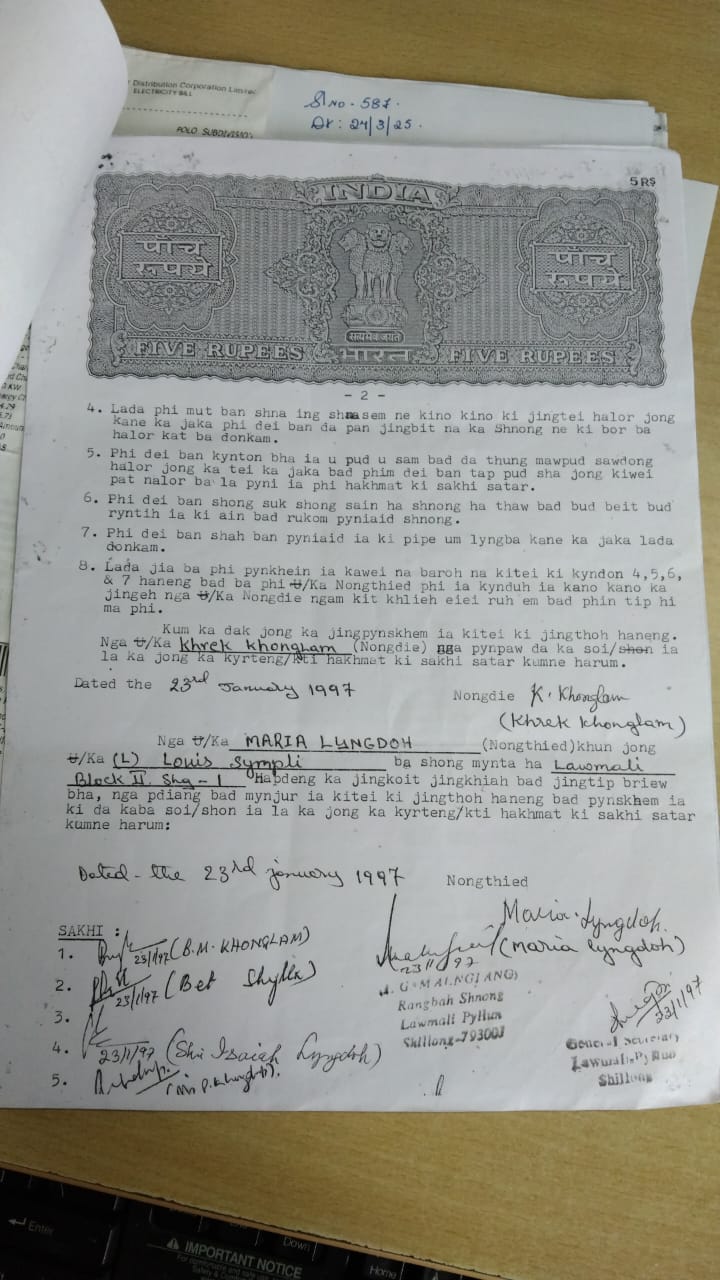 Distribution Corporation Limited
ELECTRICITY BILL
POLO SUBDIVISION
Sl No - 587.
Dt: 24/3/25.
5 RS
INDIA
पाँच रूपये
पाँच रूपये
सत्यमेव जयते
FIVE RUPEES भारत FIVE RUPEES
- 2 -
4. Lada phi mut ban shna ing shnasem ne kino kino ki jingtei halor jong
kane ka jaka phi dei ban da pan jingbit na ka Shnong ne ki bor ba
halor kat ba donkam.
5. Phi dei ban kynton bha ia u pud u sam bad da thung mawpud sawdong
halor jong ka tei ka jaka bad phim dei ban tap pud sha jong kiwei
pat nalor ba la pyni ia phi hakhmat ki sakhi satar.
6. Phi dei ban shong suk shong sain ha shnong ha thaw bad bud beit bud
ryntih ia ki ain bad rukom pyniaid shnong.
7. Phi dei ban shah ban pyniaid ia ki pipe um lyngba kane ka jaka lada
donkam.
8. Lada jia ba phi pynkhein ia kawei na baroh na kitei ki kyndon 4,5,6,
& 7 haneng bad ba phi U/Ka Nongthied phi ia kynduh ia kano kano ka
jingeh nga U/Ka Nongdie ngam kit khlieh eiei ruh em bad phin tip hi
ma phi.
Kum ka dak jong ka jingpynskhem ia kitei ki jingthoh haneng.
Nga U/Ka Khrek Khonglam (Nongdie) nga pynpaw da ka soi/shon ia
la ka jong ka kyrteng/kti hakhmat ki sakhi satar kumne harum.
Dated the 23rd January 1997 Nongdie K. Khonglam
(Khrek Khonglam)
Nga U/Ka MARIA LYNGDOH (Nongthied) khun jong
U/Ka (L) Louis Sympli ba shong mynta ha Lawmali
Block II. Shg - 1 Hapdeng ka jingkoit jingkhiah bad jingtip briew
bha, nga pdiang bad mynjur ia kitei ki jingthoh haneng bad pynskhem ia
ki da kaba soi/shon ia la ka jong ka kyrteng/kti hakhmat ki sakhi satar
kumne harum:
Dated - the 23rd january 1997 Nongthied
Maria. Lyngdoh.
(Maria Lyngdoh)
SAKHI :
1. 23/1/97 (B.M. KHONGLAM)
2. 23/1/97 (Bet Shylla)
3.
4. 23/1/97 (Shri Isaiah Lyngdoh)
5.
23/1/97
Rangbah Shnong
Lawmali Pyllun
Shillong-793001
23/1/97
General Secretary
Lawmali Pyllun
Shillong
Enter
Down
Home
IMPORTANT NOTICE